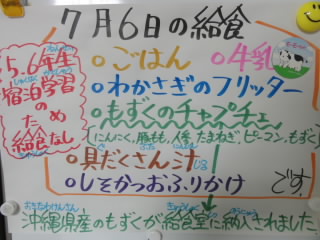 7月6日の給食
5.6年生
宿泊学習
のため
給食なし
ごはん
牛乳
わかさぎのフリッター
もずくのチャプチェ
(にんにく、豚もも、人参、たまねぎ、ピーマン、もずく)
具だくさん汁
しそかつおふりかけ
です。
沖縄県産のもずくが給食室に納入されました。